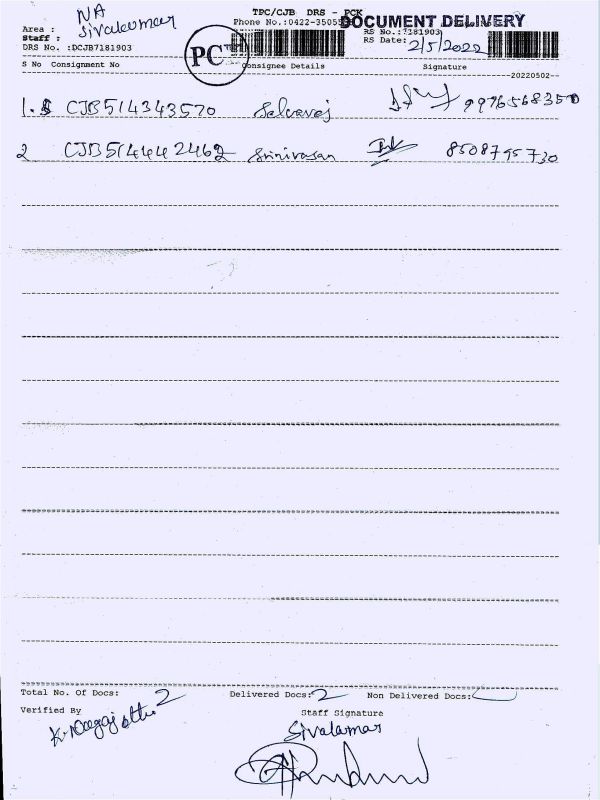 TPC/CJB DRS - PCK
DOCUMENT DELIVERY
Area : NA
Phone No.:0422-3505
Staff : Sivakumar
RS No.:7181903
DRS No. :DCJB7181903
PC
RS Date: 2/5/2022
S No Consignment No Consignee Details Signature
--20220502--
1. CJB514343570 Selvaraj 9976568350
2 CJB514442462 Srinivasan 8508795730
Total No. Of Docs: 2 Delivered Docs: 2 Non Delivered Docs:
Verified By
Staff Signature
Sivakumar